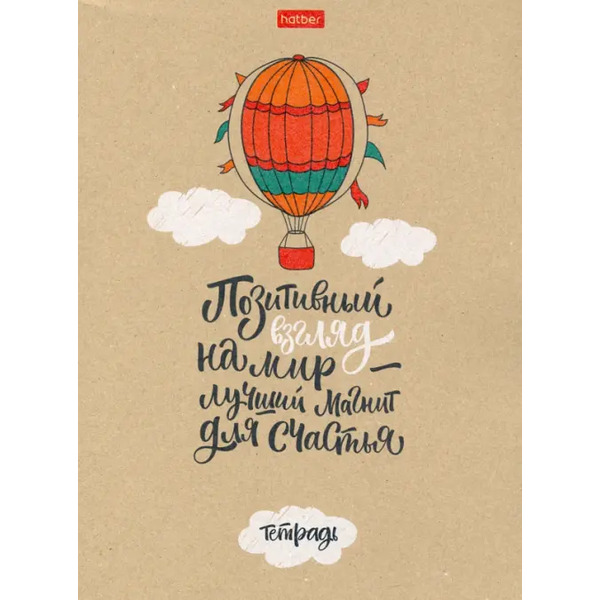 hatber
Позитивный
взгляд
на мир –
лучший магнит
для счастья
тетрадь